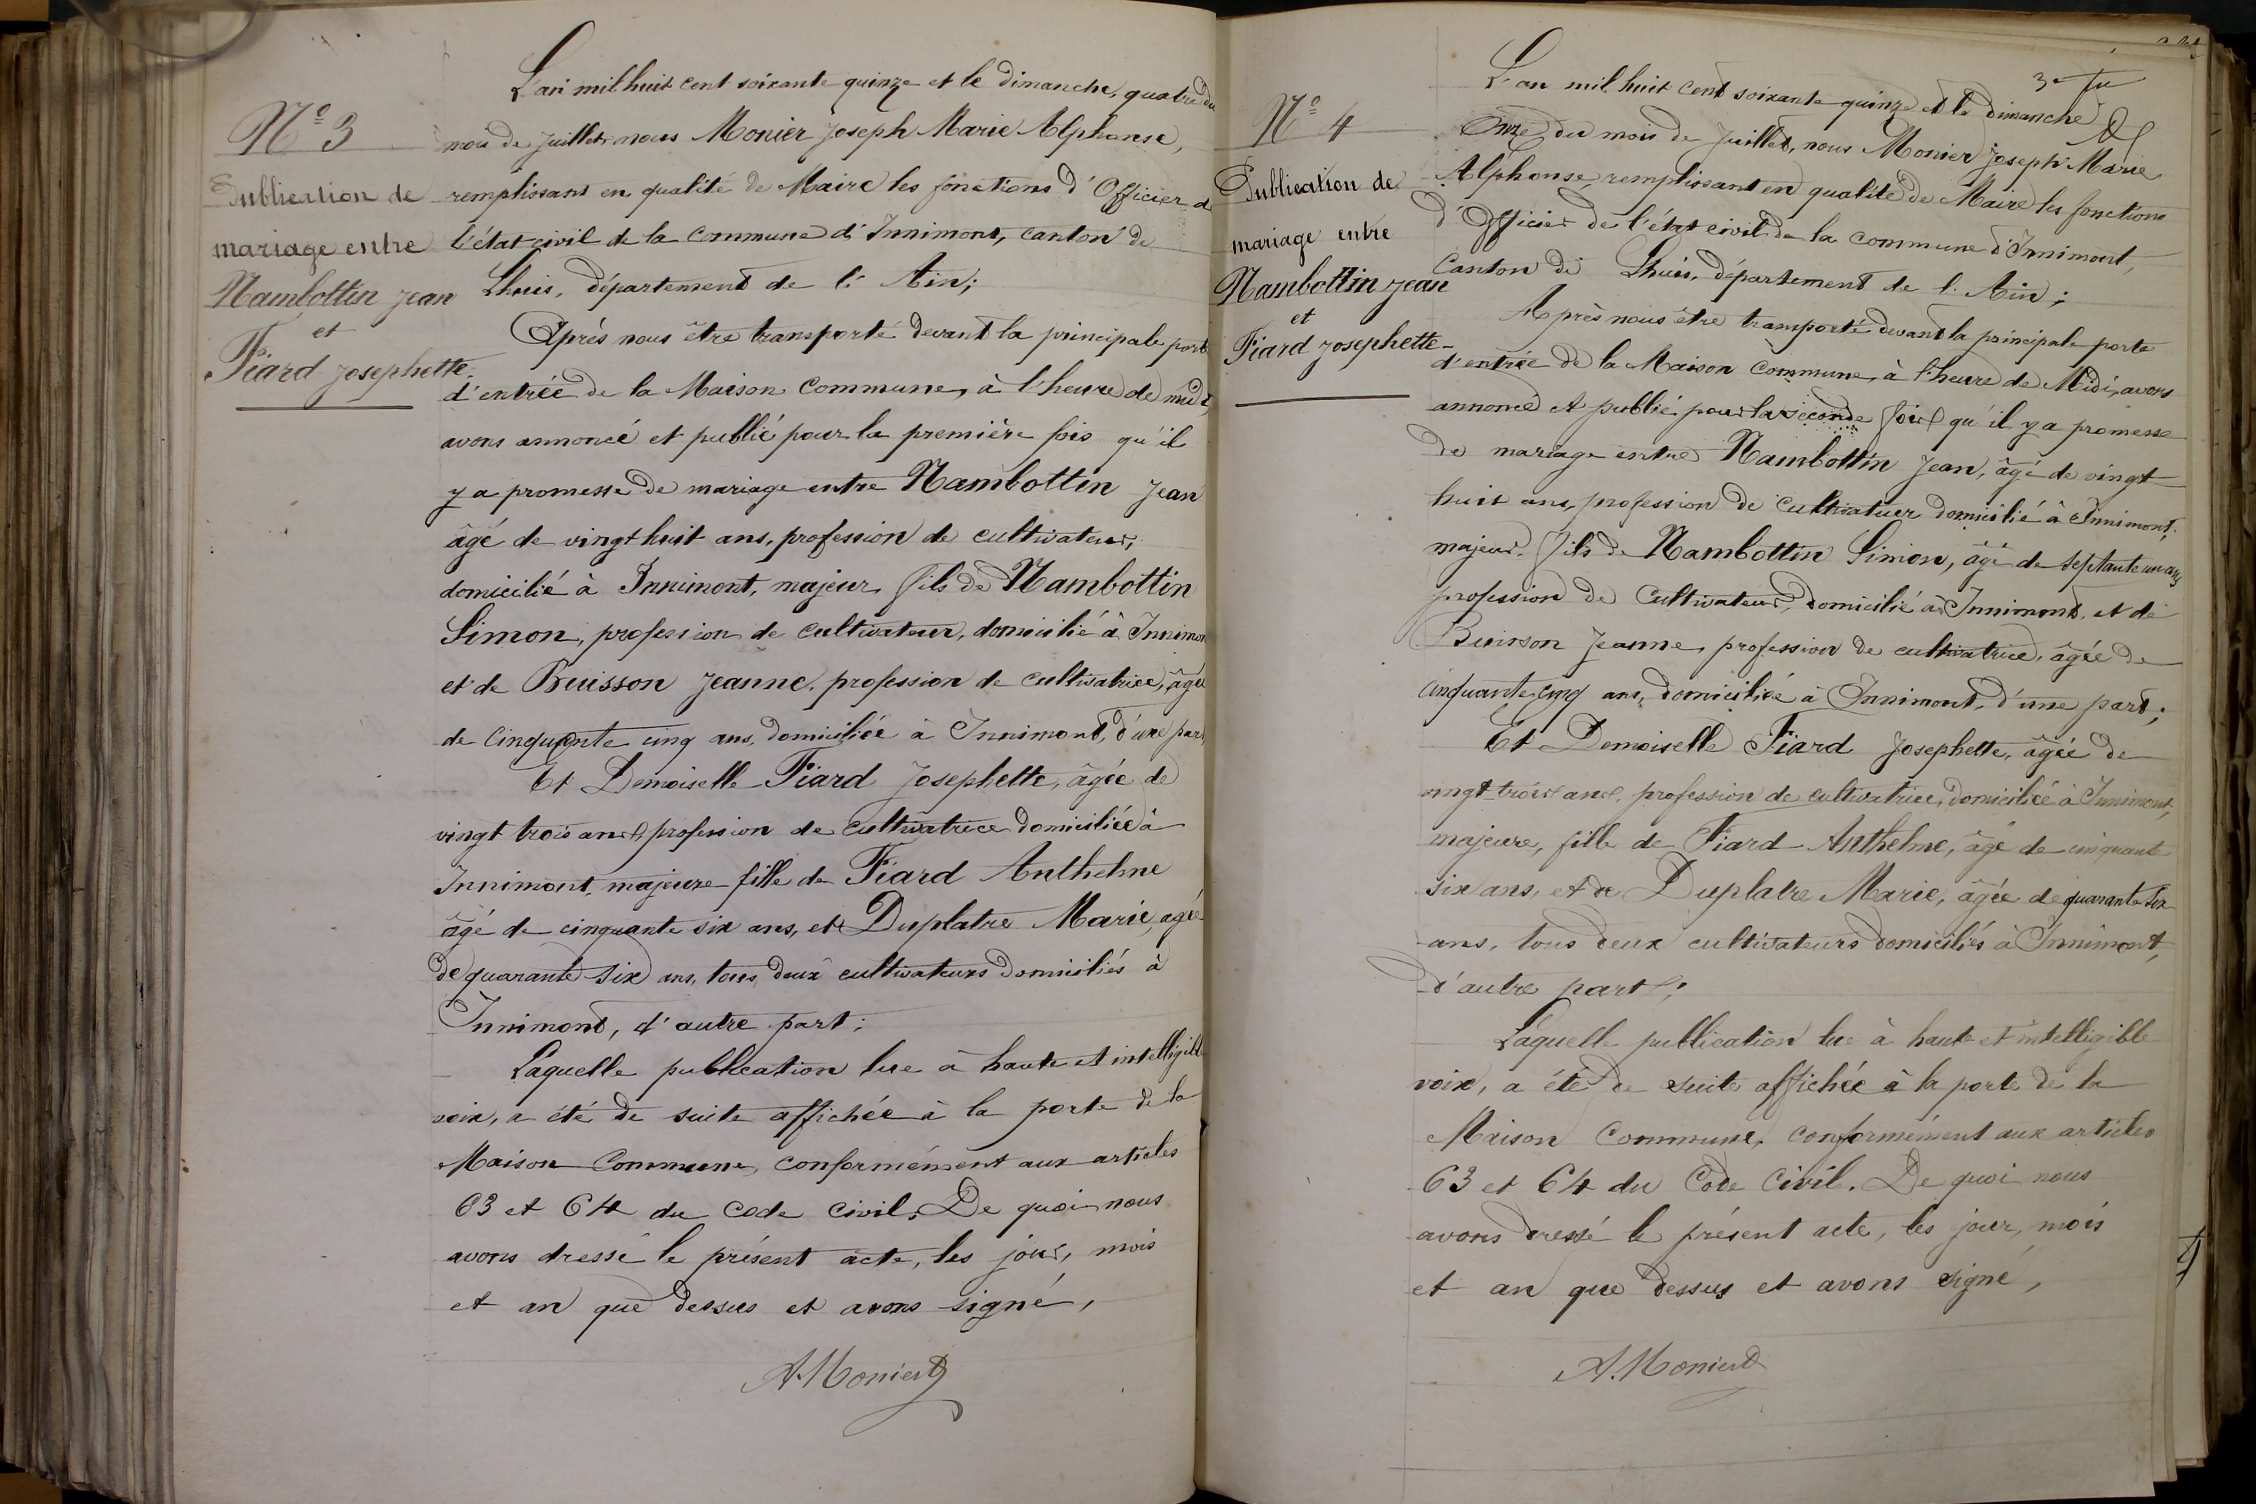 N° 3
Publication de
mariage entre
Nambottin Jean
et
Fiard Josephette.
L'an mil huit cent soixante quinze et le dimanche, quatre du
mois de Juillet, nous Monier Joseph Marie Alphonse,
remplissant en qualité de Maire les fonctions d'Officier d
l'état civil de la commune d'Innimont, canton de
Lhuis, département de l'Ain;
Après nous être transporté devant la principale porte
d'entrée de la Maison Commune, à l'heure de midi
avons annoncé et publié pour la première fois qu'il
y a promesse de mariage entre Nambottin Jean
âgé de vingt huit ans, profession de cultivateur,
domicilié à Innimont, majeur, fils de Nambottin
Simon, profession de cultivateur, domicilié à Innimon
et de Buisson Jeanne, profession de cultivatrice, âgée
de cinquante cinq ans, domiciliée à Innimont, d'une part
Et Demoiselle Fiard Josephette, âgée de
vingt trois ans, profession de cultivatrice domiciliée à
Innimont, majeure fille de Fiard Anthelme
âgé de cinquante six ans, et Duplatre Marie, agée
de quarante six ans, tous deux cultivateurs domiciliés à
Innimont, d'autre part;
Laquelle publication lue à haute et intelligible
voix, a été de suite affichée à la porte de la
Maison Commune, conformément aux articles
63 et 64 du code civil. De quoi nous
avons dressé le présent acte, les jour, mois
et an que dessus et avons signé,
A. Monier
3e fu
N° 4
Publication de
mariage entre
Nambottin Jean
et
Fiard Josephette
L'an mil huit cent soixante quinze et le dimanche
Onze du mois de Juillet, nous Monier Joseph Marie
Alphonse, remplissant en qualité de Maire les fonctions
d'Officier de l'état civil de la commune d'Innimont,
canton de Lhuis, département de l'Ain;
Après nous être transporté devant la principale porte
d'entrée de la Maison Commune, à l'heure de Midi, avons
annoncé et publié pour la seconde fois qu'il y a promesse
de mariage entre Nambottin Jean, âgé de vingt
huit ans, profession de cultivatuer domicilié à Innimont,
majeur, fils de Nambottin Simon, âgé de septante un ans
profession de Cultivateur, domicilié à Innimont, et de
Buisson Jeanne, profession de cultivatrice, âgée de
cinquante cinq ans, domiciliée à Innimont, d'une part;
Et Demoiselle Fiard Josephette, âgée de
vingt trois ans, profession de cultivatrice, domiciliée à Innimont,
majeure, fille de Fiard Anthelme, âgé de cinquante
six ans, et de Duplatre Marie, âgée de quarante six
ans, tous deux cultivateurs domiciliés à Innimont,
d'autre part;
Laquelle publication lue à haute et intelligible
voix, a été de suite affichée à la porte de la
Maison Commune, conformément aux articles
63 et 64 du Code Civil. De quoi nous
avons dressé le présent acte, les jour, mois
et an que dessus et avons signé,
A. Monier